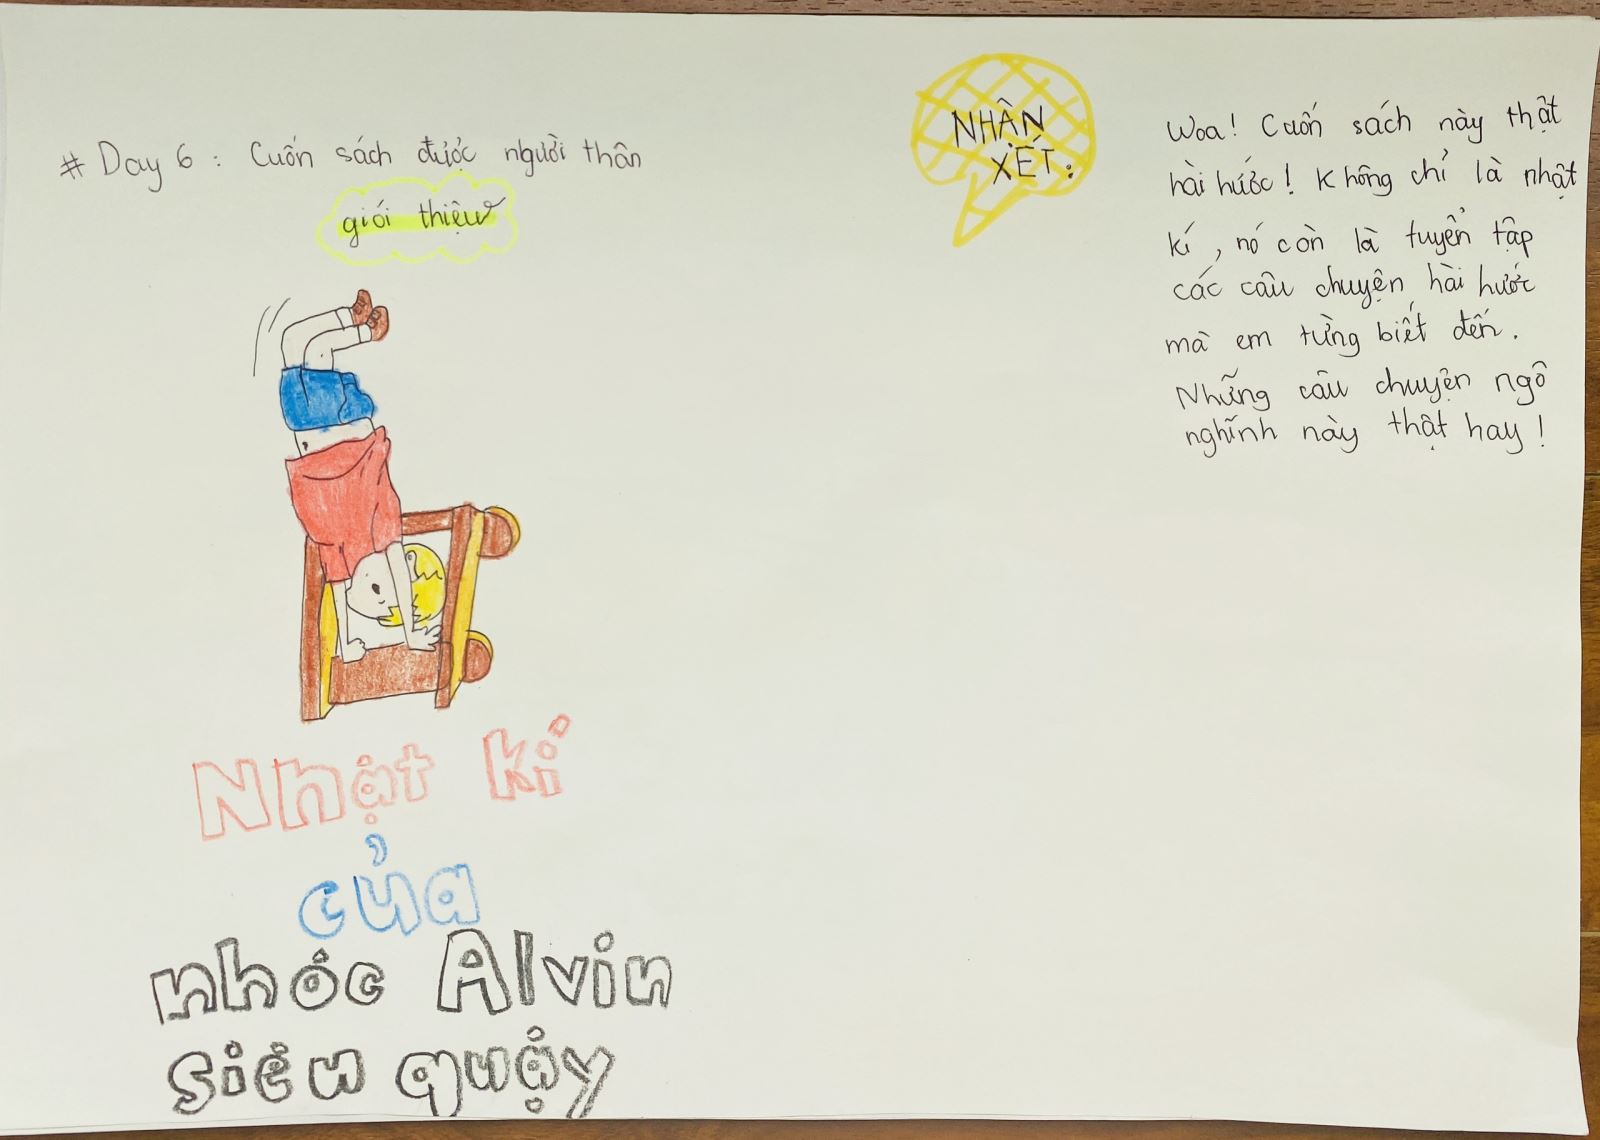 # Day 6 : Cuốn sách được người thân
giới thiệu
Nhật kí
của
nhóc Alvin
siêu quậy
NHẬN
XÉT:
Woa! Cuốn sách này thật
hài hước! Không chỉ là nhật
kí, nó còn là tuyển tập
các câu chuyện hài hước
mà em từng biết đến.
Những câu chuyện ngô
nghĩnh này thật hay!